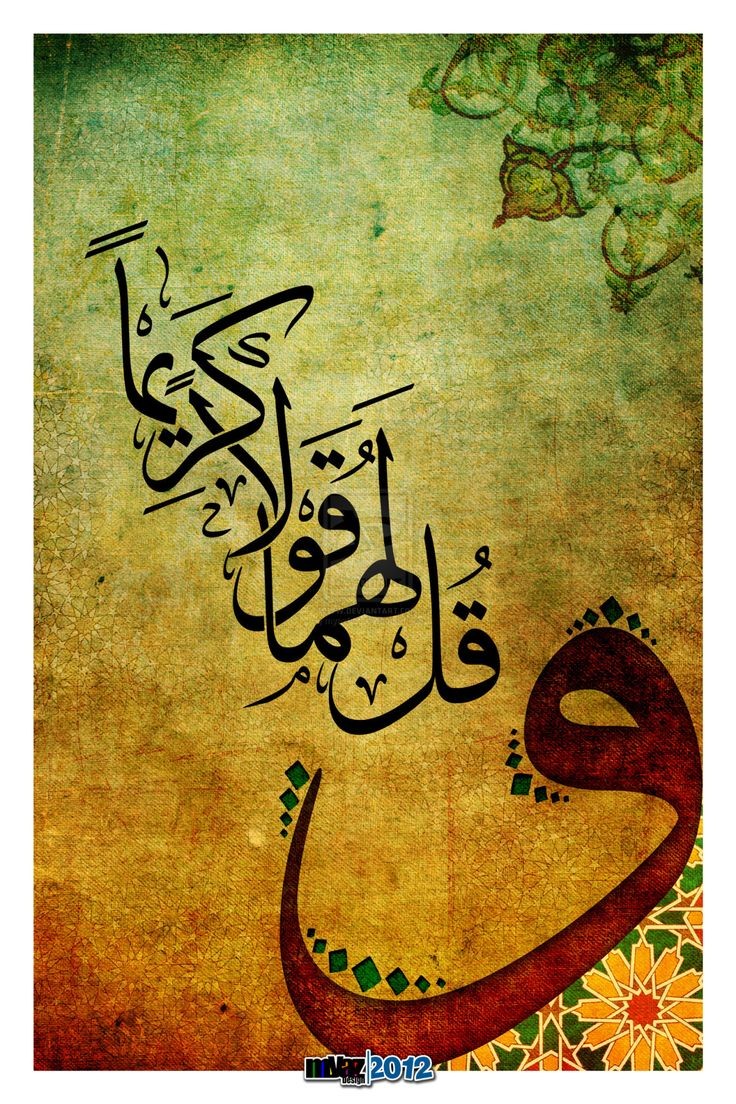 و
قُل
لَهُمَا
قَوْلًا
كَرِيمًا
DEVIANTART.C
mNaz
Design
2012